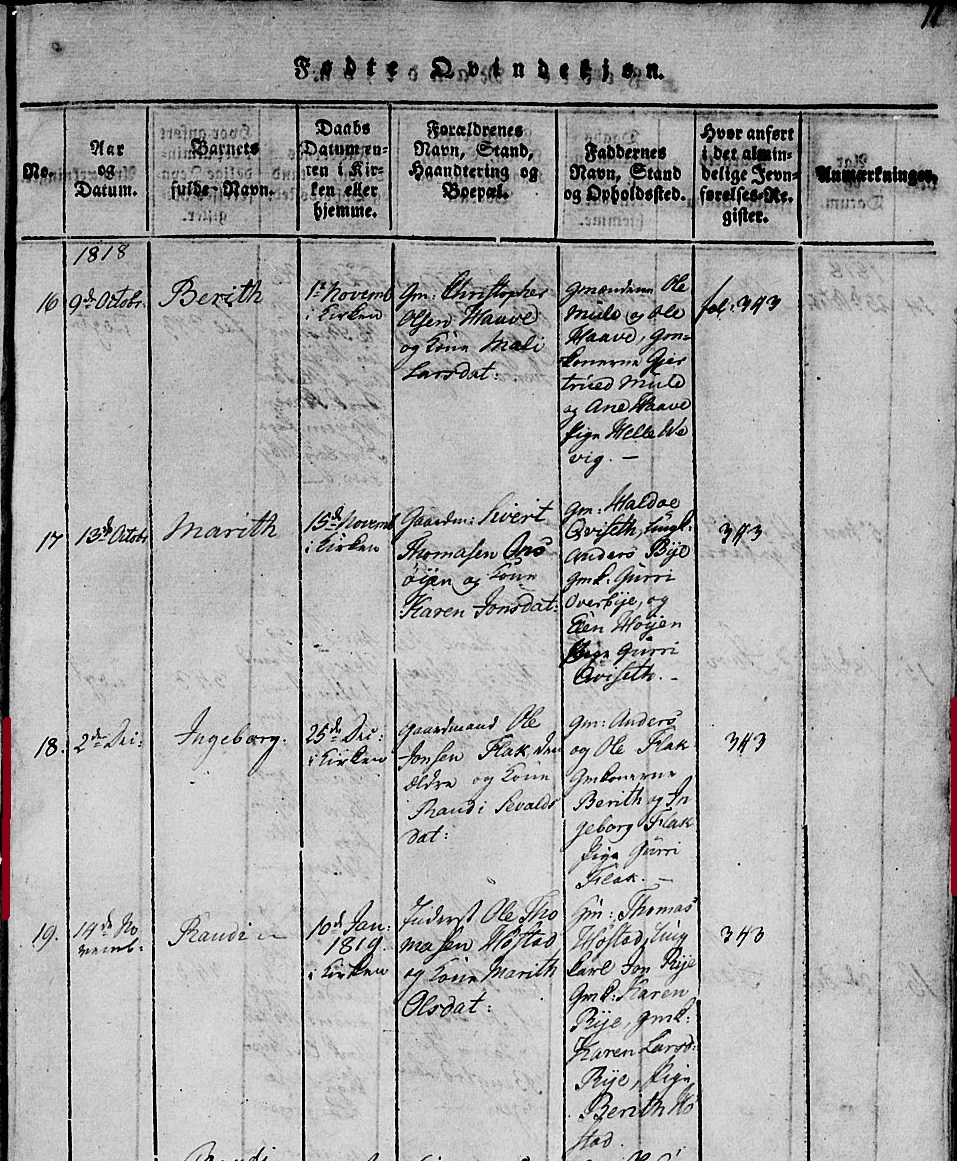 11
Fødte Qvindekjøn.
No.
Aar
og
Datum.
Barnets
fulde Navn.
Daabs
Datum en-
ten i Kir-
ken eller
hjemme.
Forældrenes
Navn, Stand,
Haandtering og
Boepæl.
Faddernes
Navn, Stand
og Opholdssted.
Hvor anført
i det almin-
delige Jevn-
førelses-Re-
gister.
Anmærkninger.
1818
16
9de Octobr.
Berith
1te Novemb
i Kirken
Gm: Christopher
Olsen Haave
og Kone Mali
Larsdat:
Gmændene Ole
Mule og Ole
Haave, Gm-
konerne Gjer
trued Mule
og Ane Haave
Pige Helle We
vig. —
fol. 343
17
13de Octobr
Marith
15de Novemb
i Kirken
Gaardm: Sivert
Thomasen
øijen og Kone
Karen Jonsdat:
Gm: Haldoe
Qviseth, Ungk:
Anders Bije
Gmk. Gurri
Overbije, og
Eien Høijen
Pige Gurri
Qviseth. —
343
18.
2de Dec:
Ingeborg.
25de Dec:
i Kirken
Gaardmand Ole
Jonsen Flak, den
ældre og Kone
Randi Sevalds
dat:
Gm: Anders
og Ole Flak
Gmkonerne
Berith og In
geborg Flak
Pige Gurri
Flak. —
343
19.
14de No
vemb:
Randi
10de Jan:
1819.
i Kirken
Inderst Ole Tho
masen Høstad
og Kone Marith
Olsdat:
Gm: Thomas
Høstad, Ung
karl Jon Rije
Gmk: Karen
Rije, Gmk:
Karen Larsd:
Rije, Pige
Berith Hø
stad.
343
Randi